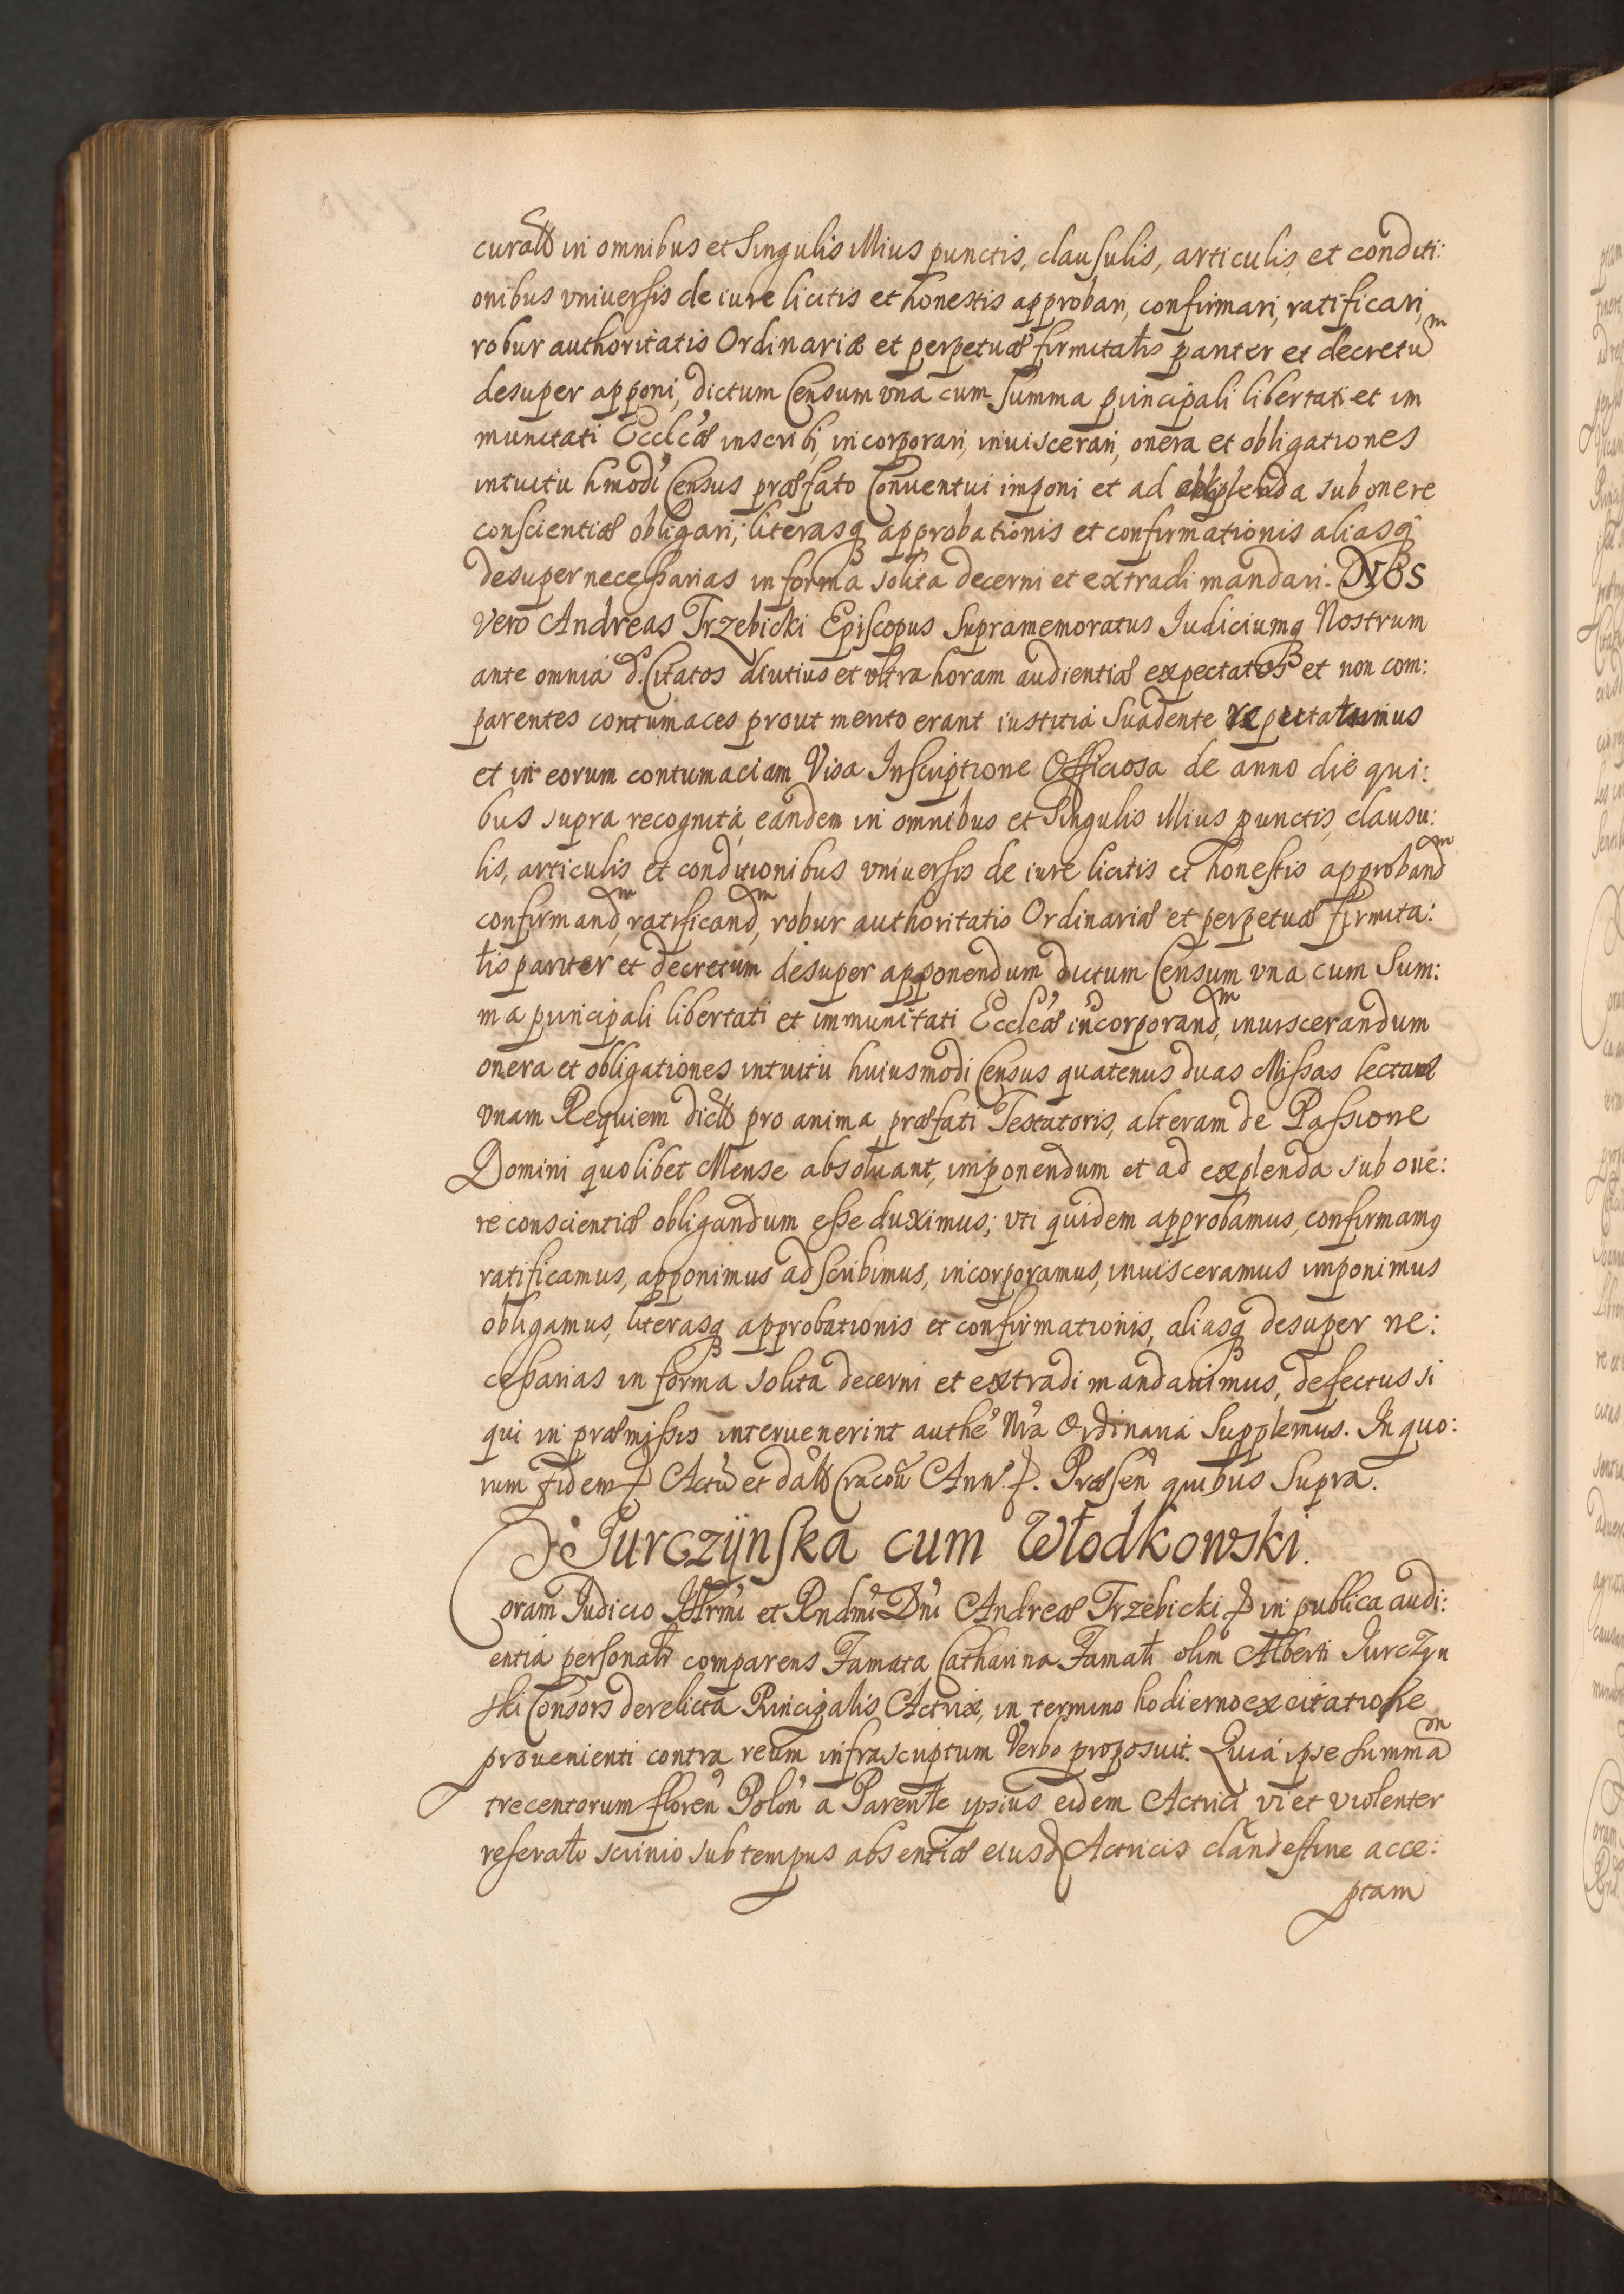 in omnibus et Singulis illius punctis, clausulis, articulis et conditi:
onibus vniuersis de iure licitis et honestis approbari, confirmari, ratificari,
robur authoritatis Ordinariæ et perpetuæ firmitatis pariter et decretum
desuper apponi, dictum Censum vna cum Summa principali libertati et im
munitati Eccleæ inscribi, incorporari, inuiscerari, onera et obligationes
intuitu hmodi Census præfato Conuentui imponi et ad sub onere
conscientiæ obligari; literasq approbationis et confirmationis aliasq
desuper necessarias in forma solita decerni et extradi mandari. NOS
vero Andreas Trzebicki Episcopus Supramemoratus Iudiciumq Nostrum
ante omnia d. Citatos diutius et vltra horam audientiæ expectatos et non com:
parentes contumaces prout merito erant iustitia Suadente
et in eorum contumaciam Visa Inscriptione Officiosa de anno die qui:
bus supra recognita, eandem in omnibus et Singulis illius punctis clausu:
lis, articulis et conditionibus vniuersis de iure licitis et honestis approbandm
confirmandm, ratificandm, robur authoritatis Ordinariæ et perpetuæ firmita:
tis pariter et decretum desuper apponendum dictum Censum vna cum Sum:
ma principali libertati et immunitati Eccleæ incorporandm, inuiscerandum
onera et obligationes intuitu huiusmodi Census quatenus duas Missas lectas
vnam Requiem pro anima præfati Testatoris, alteram de Passione
Domini quolibet Mense absoluant, imponendum et ad explenda sub one:
re conscientiæ obligandum esse duximus; vti quidem approbamus, confirmamq
ratificamus, apponimus adscribimus, incorporamus, inuisceramus imponimus
obligamus, literasq approbationis et confirmationis, aliasq desuper ne:
cessarias in forma solita decerni et extradi mandauimus, defectus si
qui in præmissis interuenerint authe Nra Ordinaria Supplemus. In quo:
rum fidem Actũ et Cracoũ Ann. Præsen quibus Supra.
Jurczÿnska cum Włodkowski.
Coram Judicio Illrmi et Rndmi Dni Andreæ Trzebicki in publica audi:
entia comparens Famata Catharina Famati olim Alberti Jurczyn
ski Consors derelicta Principalis Actrix, in termino hodierno ex citatione
prouenienti contra reum infrascriptum Verbo proposuit. Quia ipse Summam
trecentorum floren Polon a Parente ipsius eidem Actrici vi et violenter
reserato scrinio sub tempus absentiæ eiusd Actricis clandestine acce:
ptam